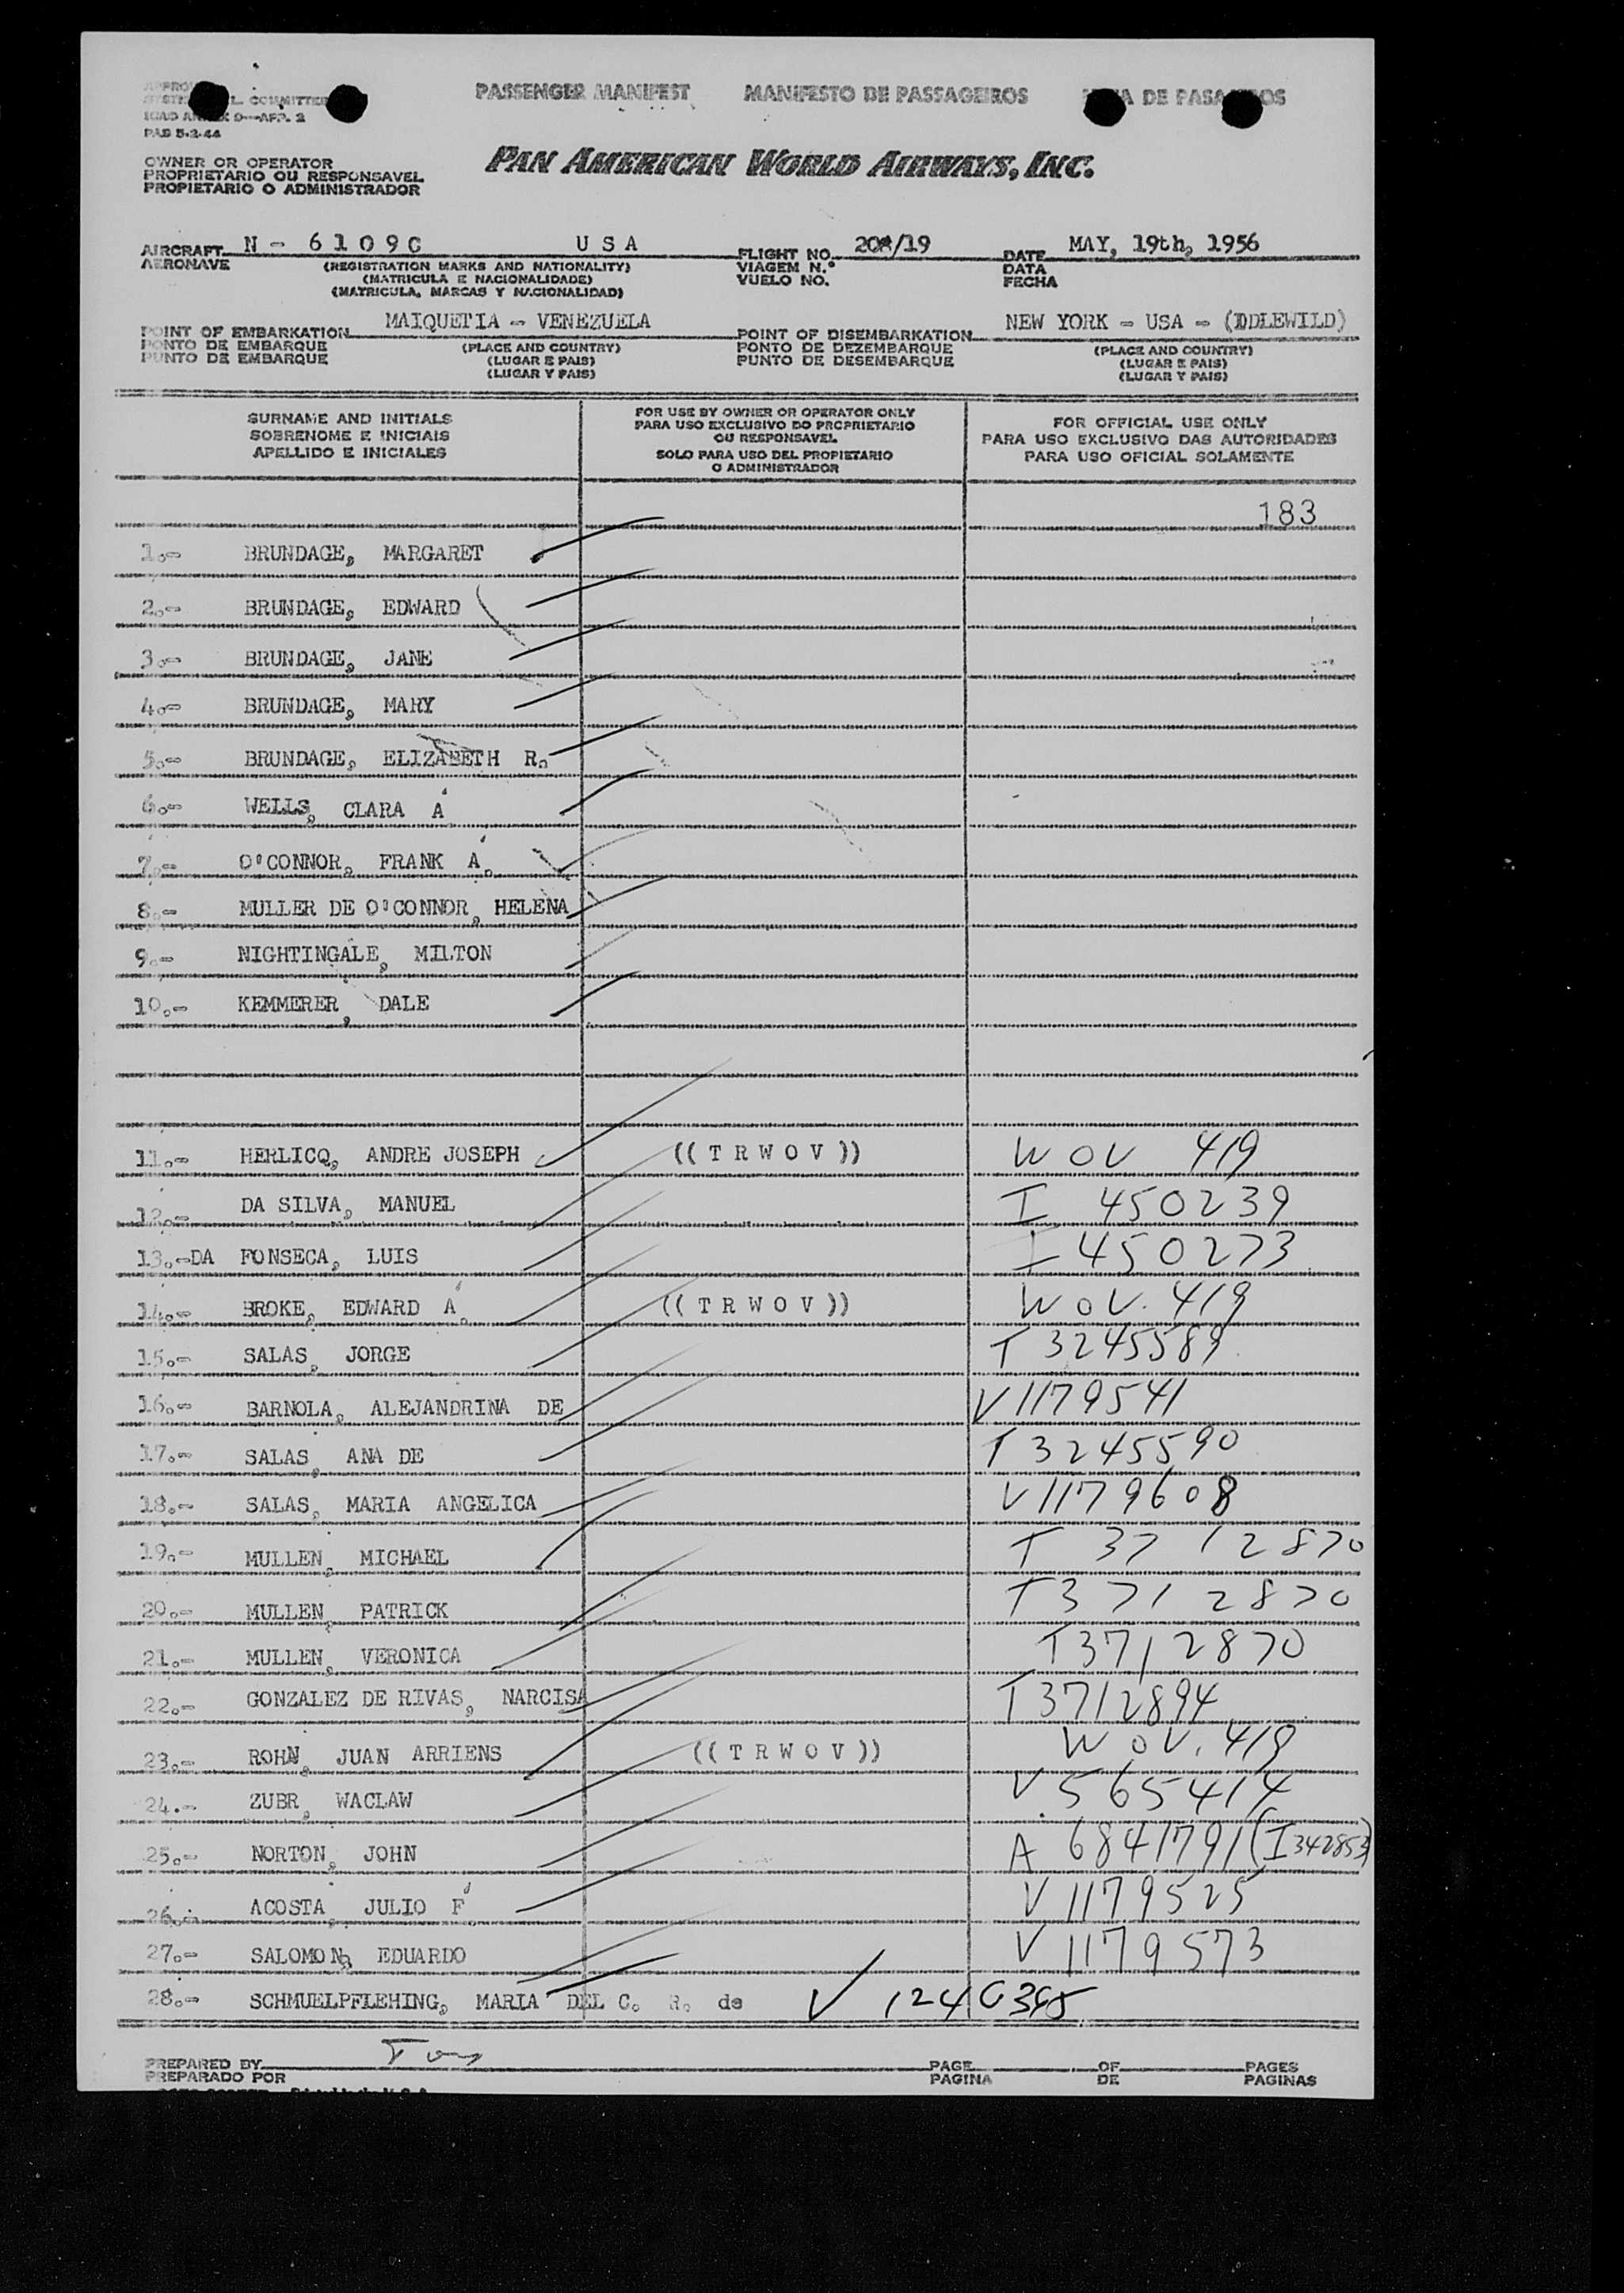 PASSENGER MANIFEST MANIFESTO DE PASSAGEIROS DE
L. COMMITTEE
PAB 5-2-44
OWNER OR OPERATOR
PROPRIETARIO OU RESPONSAVEL
PROPIETARIO O ADMINISTRADOR
PAN AMERICAN WORLD AIRWAYS, INC.
AIRCRAFT N - 6109C USA FLIGHT NO. 208/19 DATE MAY, 19th, 1956
AERONAVE (REGISTRATION MARKS AND NATIONALITY) VIAGEM N.° DATA
(MATRICULA E NACIONALIDADE) VUELO NO. FECHA
(MATRICULA, MARCAS Y NACIONALIDAD)
POINT OF EMBARKATION MAIQUETIA - VENEZUELA POINT OF DISEMBARKATION NEW YORK - USA - (IDLEWILD)
PONTO DE EMBARQUE (PLACE AND COUNTRY) PONTO DE DEZEMBARQUE (PLACE AND COUNTRY)
PUNTO DE EMBARQUE (LUGAR E PAIS) PUNTO DE DESEMBARQUE (LUGAR E PAIS)
(LUGAR Y PAIS) (LUGAR Y PAIS)
SURNAME AND INITIALS
SOBRENOME E INICIAIS
APELLIDO E INICIALES
FOR USE BY OWNER OR OPERATOR ONLY
PARA USO EXCLUSIVO DO PROPRIETARIO
OU RESPONSAVEL
SOLO PARA USO DEL PROPIETARIO
O ADMINISTRADOR
FOR OFFICIAL USE ONLY
PARA USO EXCLUSIVO DAS AUTORIDADES
PARA USO OFICIAL SOLAMENTE
183
1.- BRUNDAGE, MARGARET
2.- BRUNDAGE, EDWARD
3.- BRUNDAGE, JANE
4.- BRUNDAGE, MARY
5.- BRUNDAGE, ELIZABETH R.
6.- WELLS, CLARA A
7.- O'CONNOR, FRANK A.
8.- MULLER DE O'CONNOR, HELENA
9.- NIGHTINGALE, MILTON
10.- KEMMERER, DALE
11.- HERLICQ, ANDRE JOSEPH ((TRWOV)) WOV 419
12.- DA SILVA, MANUEL I 450239
13.-DA FONSECA, LUIS I 450273
14.- BROKE, EDWARD A. ((TRWOV)) WOV. 419
15.- SALAS, JORGE T 3245589
16.- BARNOLA, ALEJANDRINA DE V 1179541
17.- SALAS, ANA DE T 3245590
18.- SALAS, MARIA ANGELICA V 1179608
19.- MULLEN, MICHAEL T 3712870
20.- MULLEN, PATRICK T 3712870
21.- MULLEN, VERONICA T 3712870
22.- GONZALEZ DE RIVAS, NARCISA T 3712894
23.- ROHN, JUAN ARRIENS ((TRWOV)) WOV. 419
24.- ZUBR, WACLAW V 565414
25.- NORTON, JOHN A 6841791 (I 342853)
26.- ACOSTA, JULIO F. V 1179525
27.- SALOMON, EDUARDO V 1179573
28.- SCHMUELPFLEHING, MARIA DEL C. R. de V
PREPARED BY PAGE OF PAGES
PREPARADO POR PAGINA DE PAGINAS